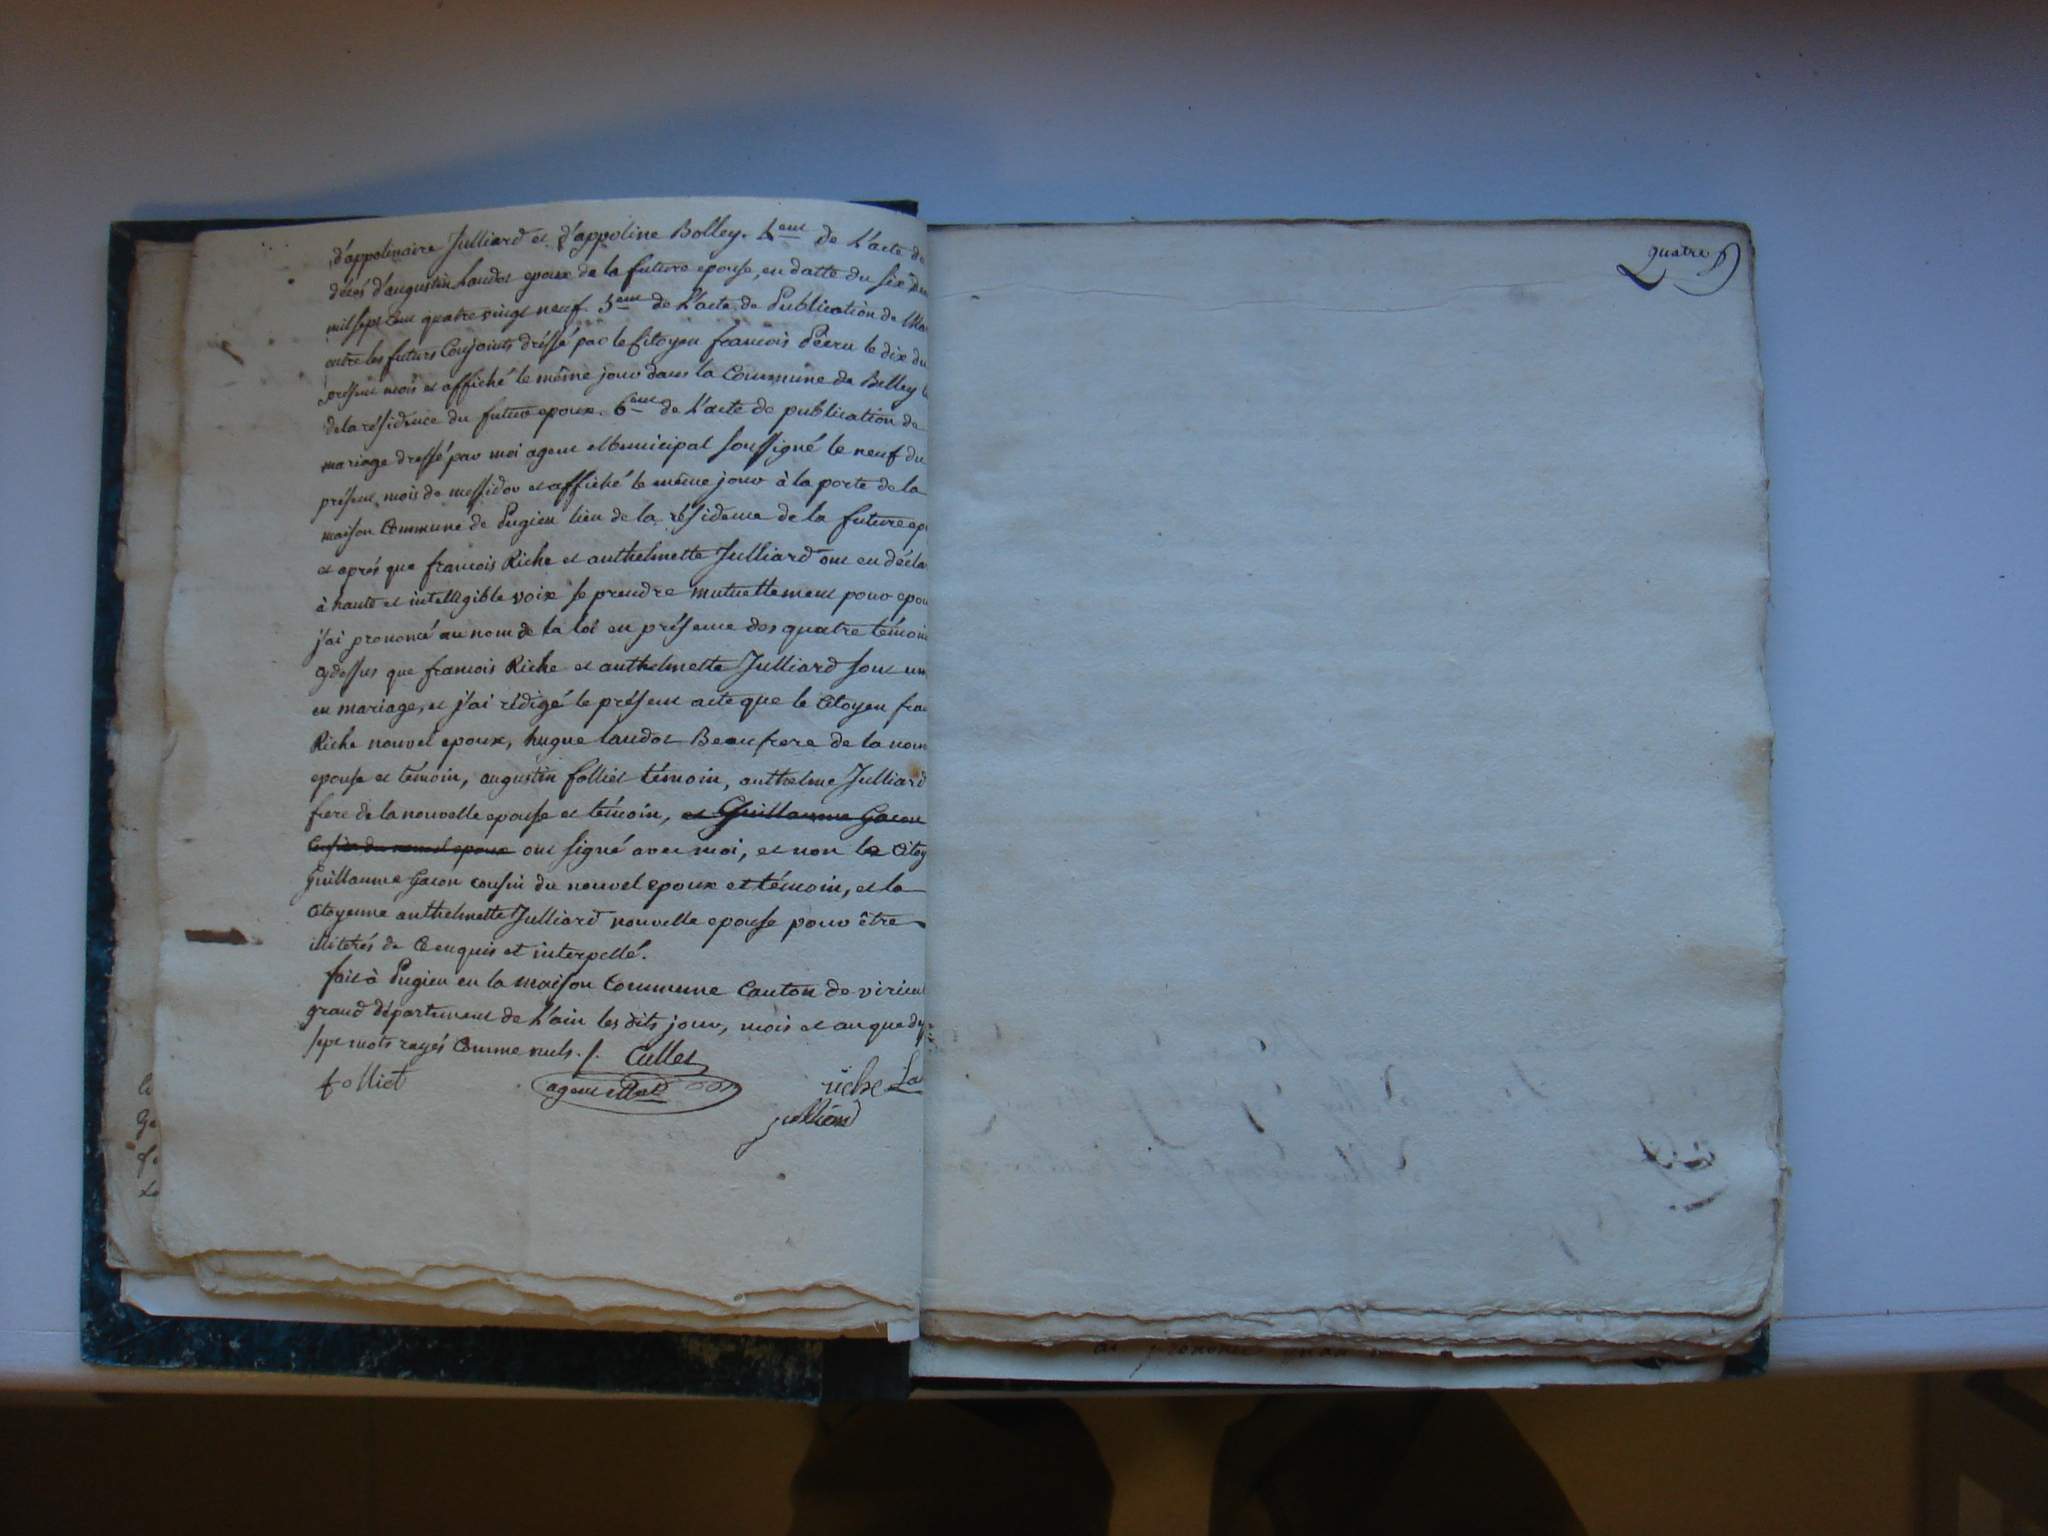 d'appolinaire Julliard et d'appoline Bolley. 4eme de L'acte de
décés d'augustin Landos epoux de la future epouse, en datte du six
mil sept cent quatre vingt neuf. 5eme de L'acte de Publication de
entre les futurs Conjoints dréssé par le Citoyen francois Peeru le dix du
présent mois et affiché le même jour dans la Commune de Belley
de la résidence du futur epoux. 6eme de L'acte de publication de
mariage dressé par moi agent Municipal soussigné le neuf du
présent mois de messidor et affiché le même jour à la porte de la
maison Commune de Pugieu lieu de la résidence de la future
et aprés que francois Riche et anthelmette Julliard ont eu
à haute et intelligible voix se prendre mutuellement pour
j'ai prononcé au nom de la loi en présence des quatre témoins
cydessus que francois Riche et anthelmette Julliard sont
en mariage, et j'ai rédigé le présent acte que le Citoyen
Riche nouvel epoux, hugue landos Beaufrere de la
epouse et témoin, augustin folliet témoin, anthelme Julliard
frere de la nouvelle epouse et témoin, et Guillaume Gacon
Cousin du nouvel epoux ont signé avec moi, et non le
Guillaume Gacon cousin du nouvel epoux et témoin, et la
Citoyenne anthelmette Julliard nouvelle epouse pour être
illiterés de Ce enquis et interpellé.
fait à Pugieu en la maison Commune Canton de
grand département de L'ain les dits jour, mois et an que
sept mots rayés Comme nuls. /. Cullet
folliet agent riche La
julliard
quatre